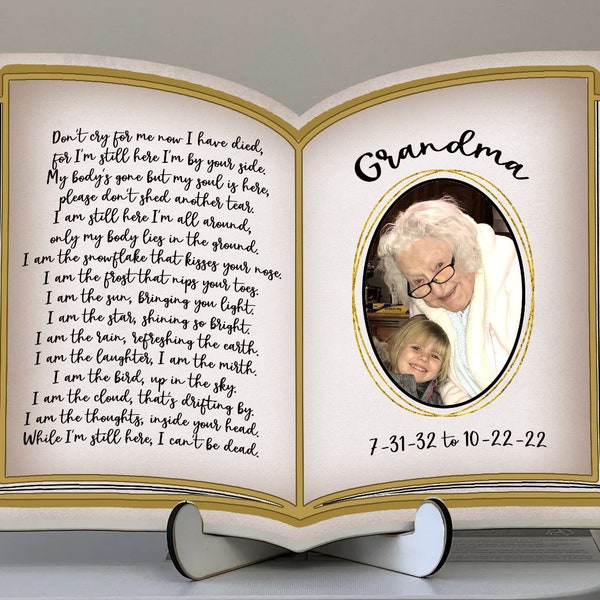 Don't cry for me now I have died,
for I'm still here I'm by your side.
My body's gone but my soul is here,
please don't shed another tear.
I am still here I'm all around,
only my body lies in the ground.
I am the snowflake that kisses your nose.
I am the frost that nips your toes.
I am the sun, bringing you light.
I am the star, shining so bright.
I am the rain, refreshing the earth.
I am the laughter, I am the mirth.
I am the bird, up in the sky.
I am the cloud, that's drifting by.
I am the thoughts, inside your head.
While I'm still here, I can't be dead.
Grandma
7-31-32 to 10-22-22